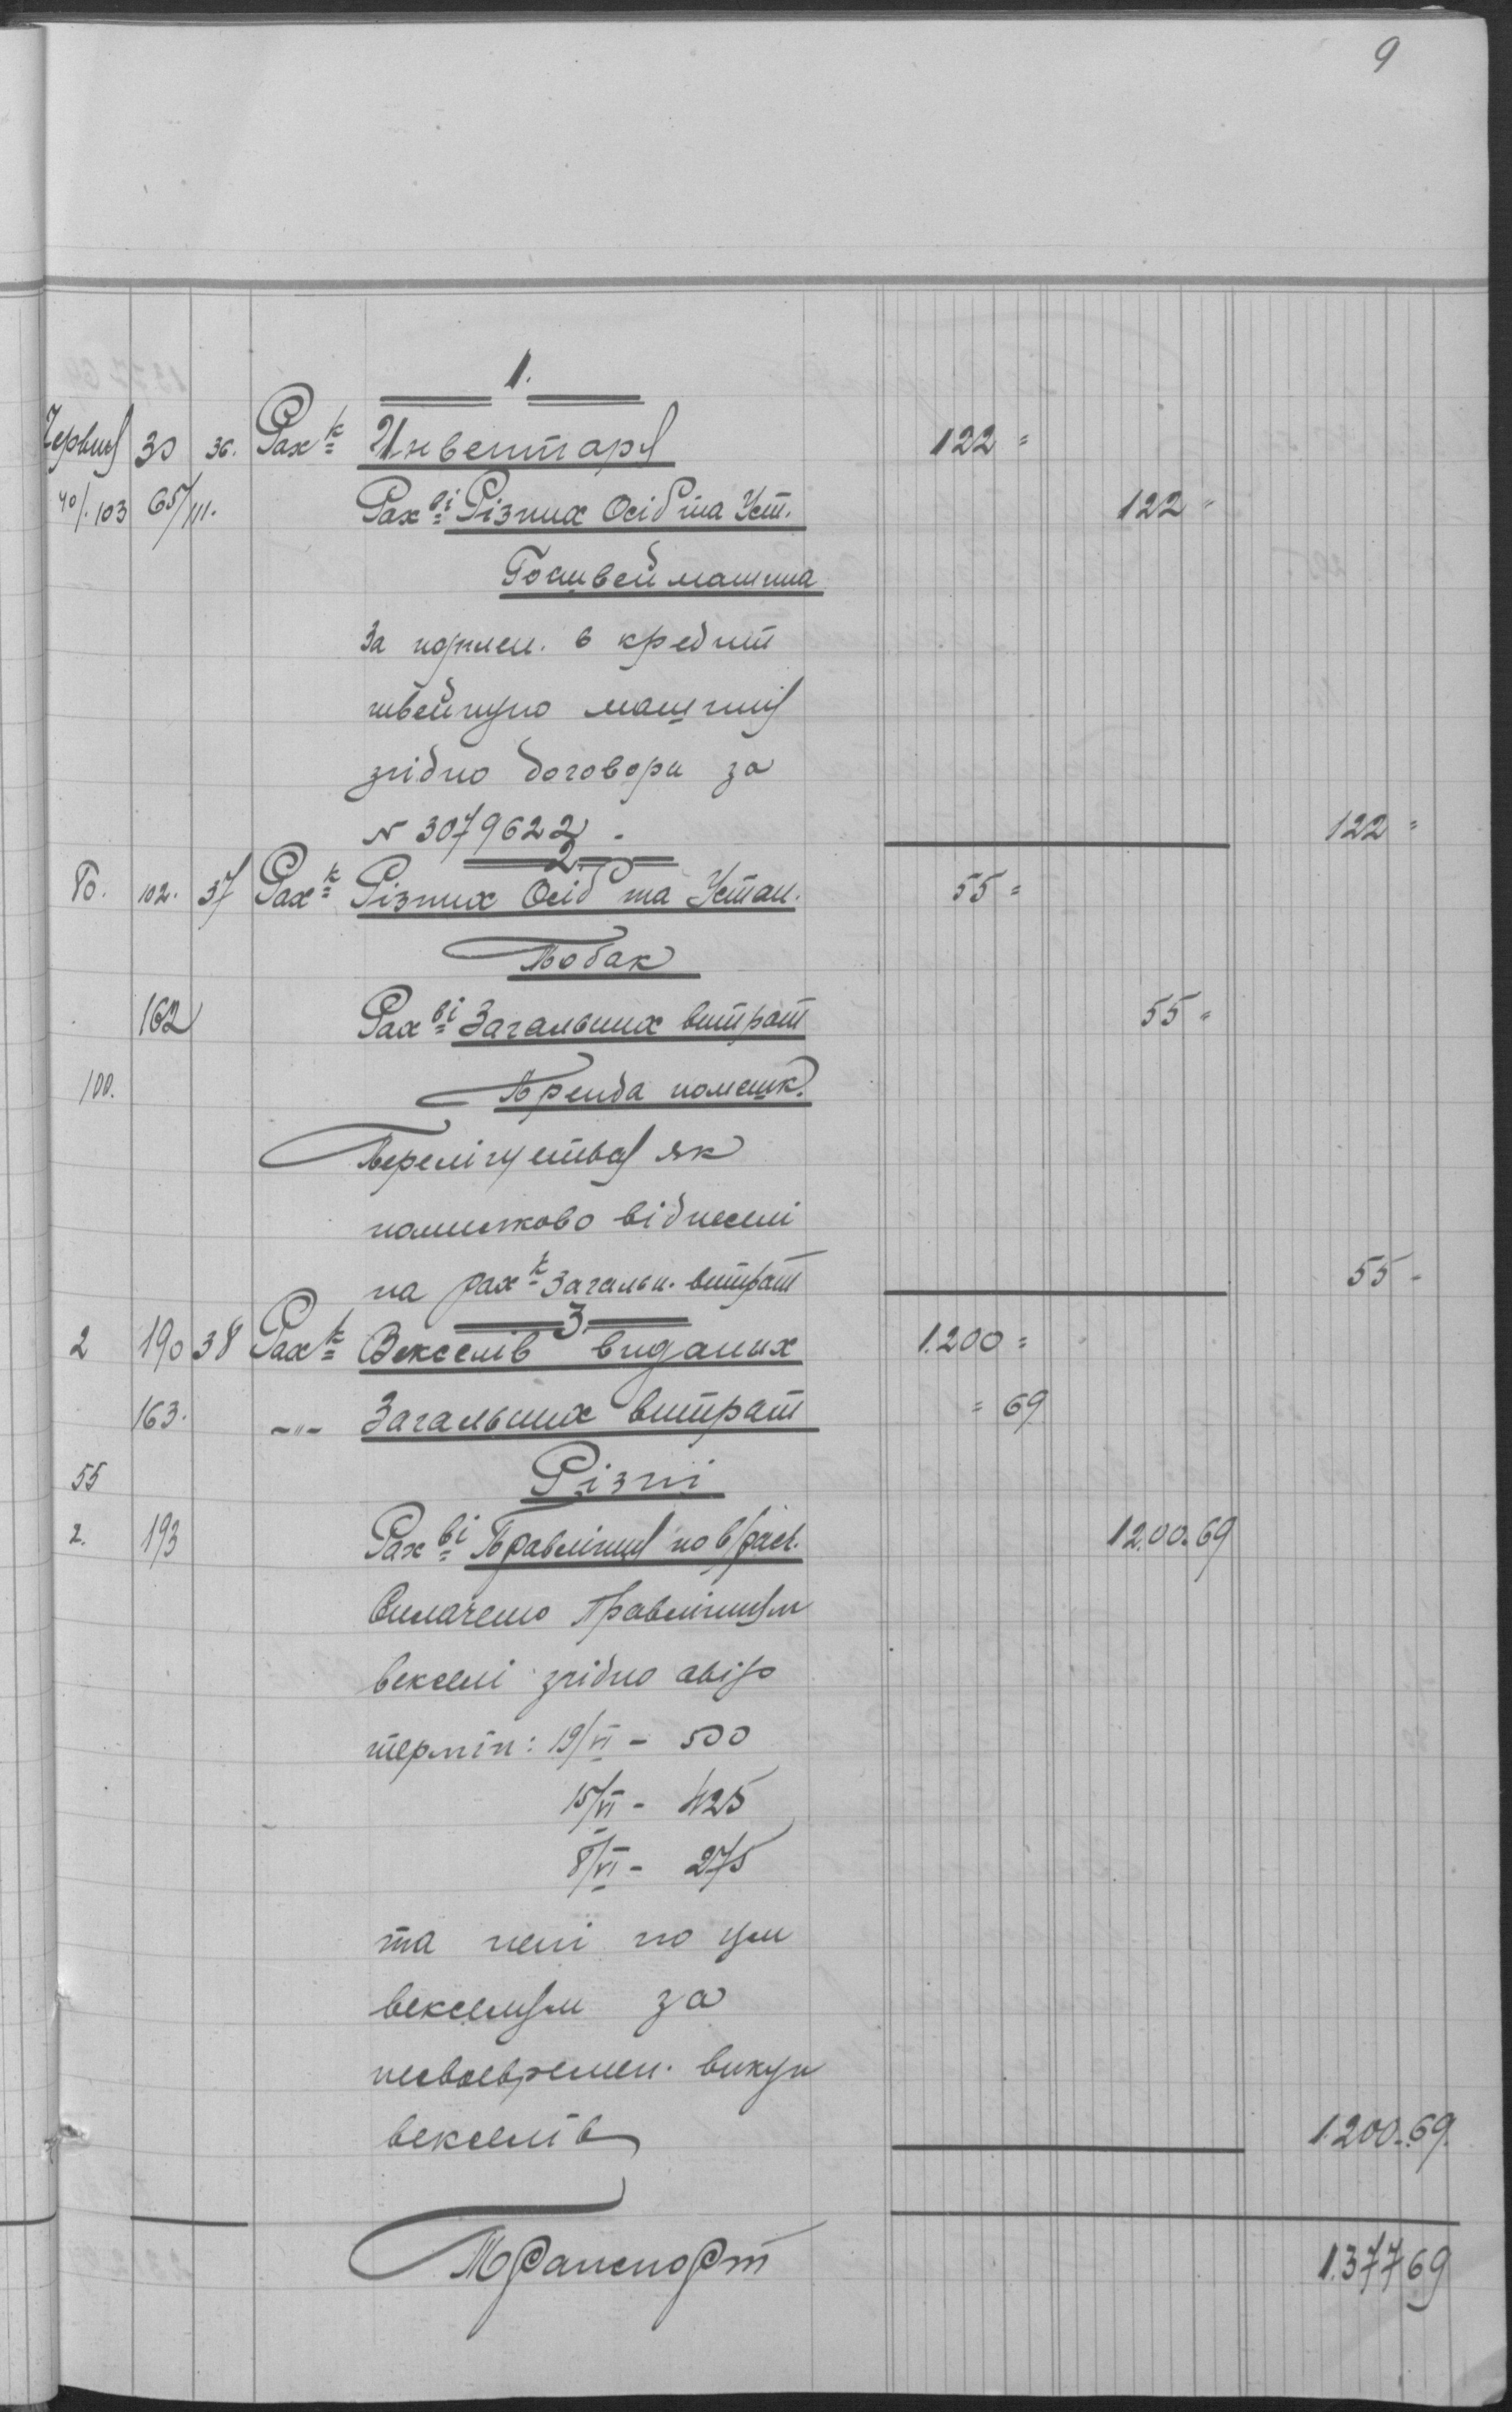 9
1.
Червня 30 36. Рах-к Инвентаря 122=
40/.103 65/111. Рах-ві Різних Осіб та Уст. 122=
Госшвеймашина
За куплен. в кредит
швейную машину
згідно договора за
N 3079622. 122=
2
Го. 102. 37 Рах-к Різних Осіб та Устан. 55=
Бобак
162 Рах-ві Загальних витрат 55=
100. Аренда помешк.
як
помилково віднесені
на рах-к Загальн. витрат 55-
3
2 190 38 Рах-к Векселів виданих 1.200=
163. -"- Загальних витрат =69
55 Різні
2. 193 Рах-ві Правлінця по в/рах. 1200.69
Сплачено Правлінням
векселі згідно авізо
термін: 19/VI - 500
15/VI - 425
8/VI - 275
та пені по цим
векселям за
несвоевремен. викуп
векселів 1200.69.
Транспорт 1.37769